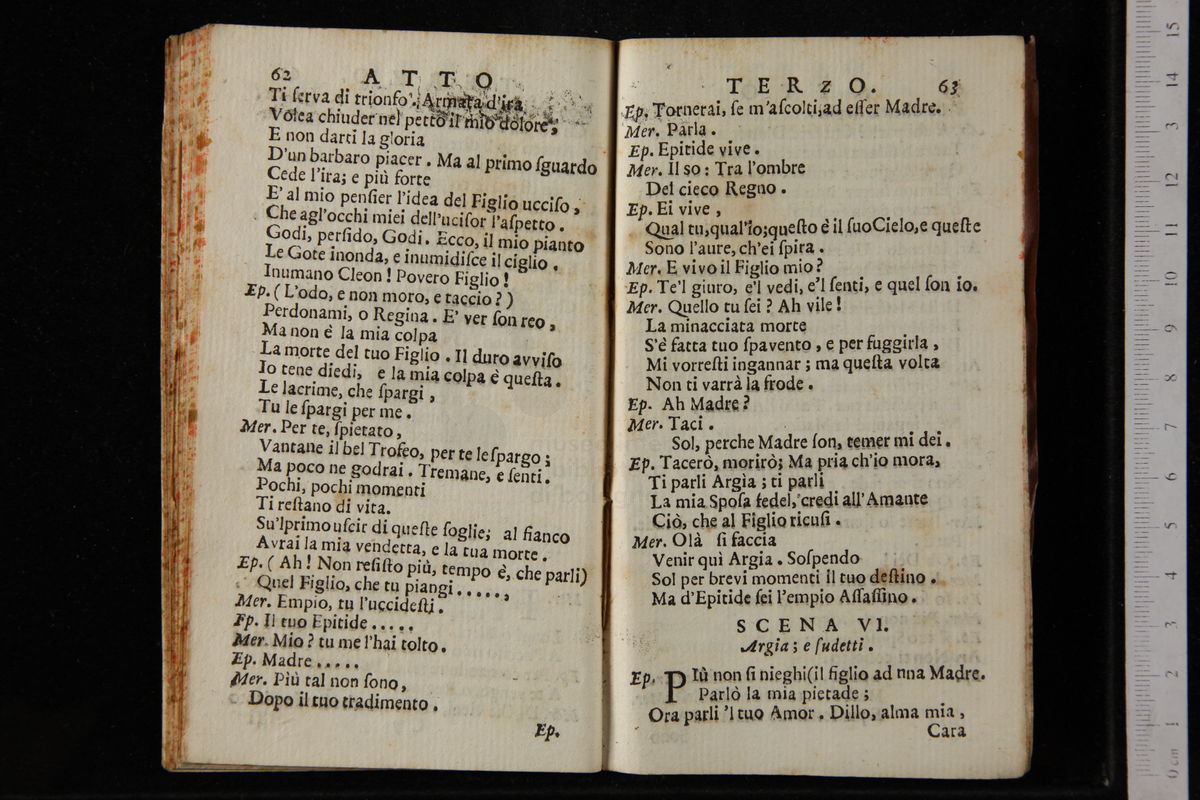 62 ATTO
Ti ſerva di trionfo. Armata d'ira
Volea chiuder nel petto il mio dolore,
E non darti la gloria
D'un barbaro piacer. Ma al primo ſguardo
Cede l'ira; e più forte
E' al mio penſier l'idea del Figlio ucciſo,
Che agl'occhi miei dell'uciſor l'aſpetto.
Godi, perfido, Godi. Ecco, il mio pianto
Le Gote inonda, e inumidiſce il ciglio.
Inumano Cleon! Povero Figlio!
Ep. (L'odo, e non moro, e taccio?)
Perdonami, o Regina. E' ver ſon reo,
Ma non è la mia colpa
La morte del tuo Figlio. Il duro avviſo
Io tene diedi, e la mia colpa è queſta.
Le lacrime, che ſpargi,
Tu le ſpargi per me.
Mer. Per te, ſpietato,
Vantane il bel Trofeo, per te le ſpargo;
Ma poco ne godrai. Tremane, e ſenti.
Pochi, pochi momenti
Ti reſtano di vita.
Su'l primo uſcir di queſte ſoglie; al fianco
Avrai la mia vendetta, e la tua morte.
Ep. (Ah! Non reſiſto più, tempo è, che parli)
Quel Figlio, che tu piangi.....,
Mer. Empio, tu l'uccideſti.
Ep. Il tuo Epitide.....
Mer. Mio? tu me l'hai tolto.
Ep. Madre.....
Mer. Più tal non ſono,
Dopo il tuo tradimento.
Ep.
TERzO. 63
Ep. Tornerai, ſe m'aſcolti, ad eſſer Madre.
Mer. Parla.
Ep. Epitide vive.
Mer. Il so: Tra l'ombre
Del cieco Regno.
Ep. Ei vive,
Qual tu, qual'io; queſto è il ſuo Cielo, e queſte
Sono l'aure, ch'ei ſpira.
Mer. E vivo il Figlio mio?
Ep. Te'l giuro, e'l vedi, e'l ſenti, e quel ſon io.
Mer. Quello tu ſei? Ah vile!
La minacciata morte
S'è fatta tuo ſpavento, e per fuggirla,
Mi vorreſti ingannar; ma queſta volta
Non ti varrà la frode.
Ep. Ah Madre?
Mer. Taci.
Sol, perche Madre ſon, temer mi dei.
Ep. Tacerò, morirò; Ma pria ch'io mora,
Ti parli Argìa; ti parli
La mia Spoſa fedel, credi all'Amante
Ciò, che al Figlio ricuſi.
Mer. Olà ſi faccia
Venir quì Argia. Soſpendo
Sol per brevi momenti il tuo deſtino.
Ma d'Epitide ſei l'empio Aſſaſſino.
SCENA VI.
Argia; e ſudetti.
Ep. PIù non ſi nieghi (il figlio ad nna Madre.
Parlò la mia pietade;
Ora parli 'l tuo Amor. Dillo, alma mia,
Cara